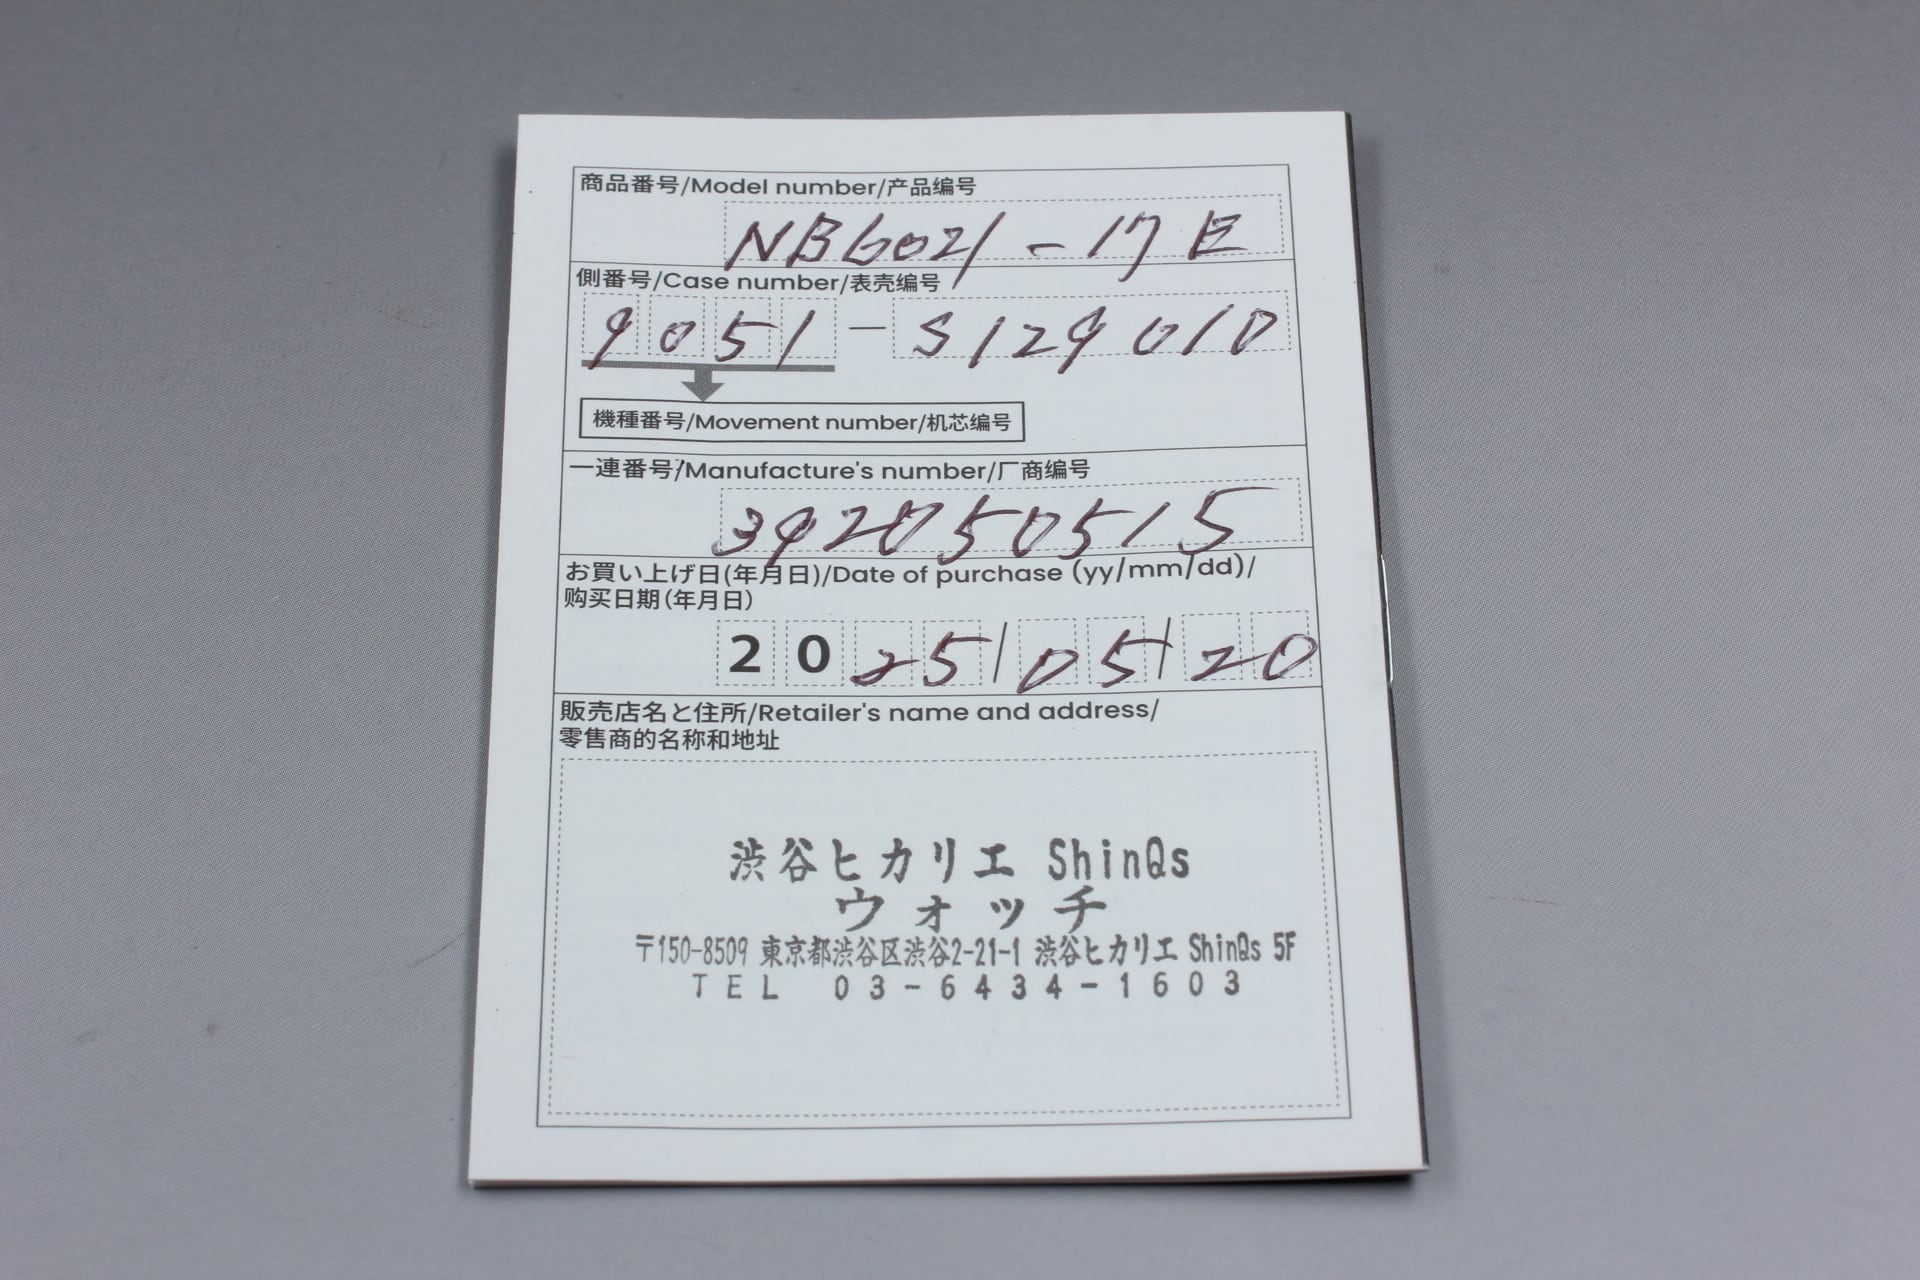 商品番号/Model number/产品编号
NB6021-17E
側番号/Case number/表壳编号
9051-S129010
機種番号/Movement number/机芯编号
一連番号/Manufacture's number/厂商编号
392050515
お買い上げ日(年月日)/Date of purchase (yy/mm/dd)/
购买日期(年月日)
2025/05/20
販売店名と住所/Retailer's name and address/
零售商的名称和地址
渋谷ヒカリエ ShinQs
ウォッチ
〒150-8509 東京都渋谷区渋谷2-21-1 渋谷ヒカリエ ShinQs 5F
TEL 03-6434-1603